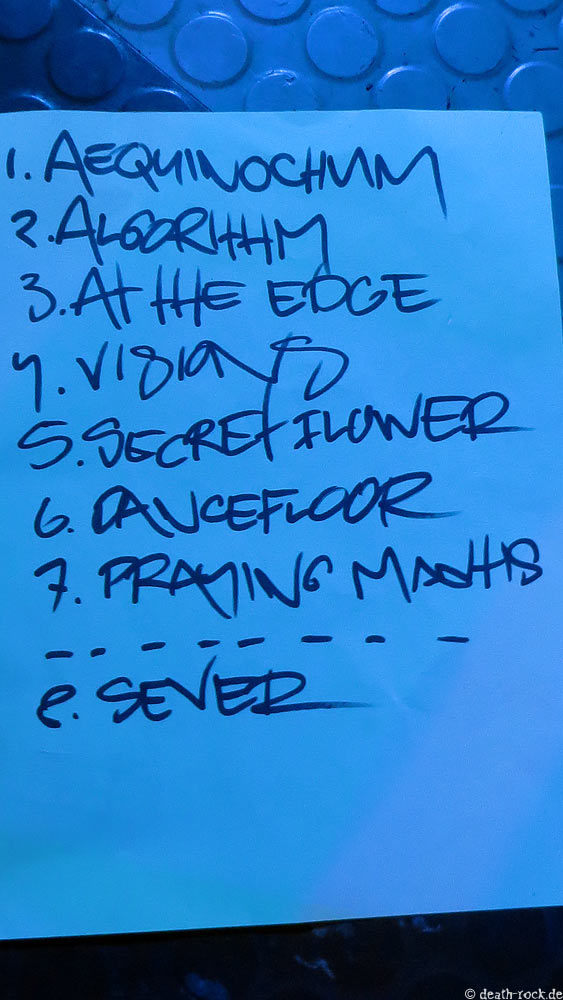 1. AEQUINOCTIUM
2. ALGORITHM
3. AT THE EDGE
4. VISIONS
5. SECRET FLOWER
6. DANCEFLOOR
7. PRAYING MANTIS
- - - - - - - -
e. SEVER
© death-rock.de